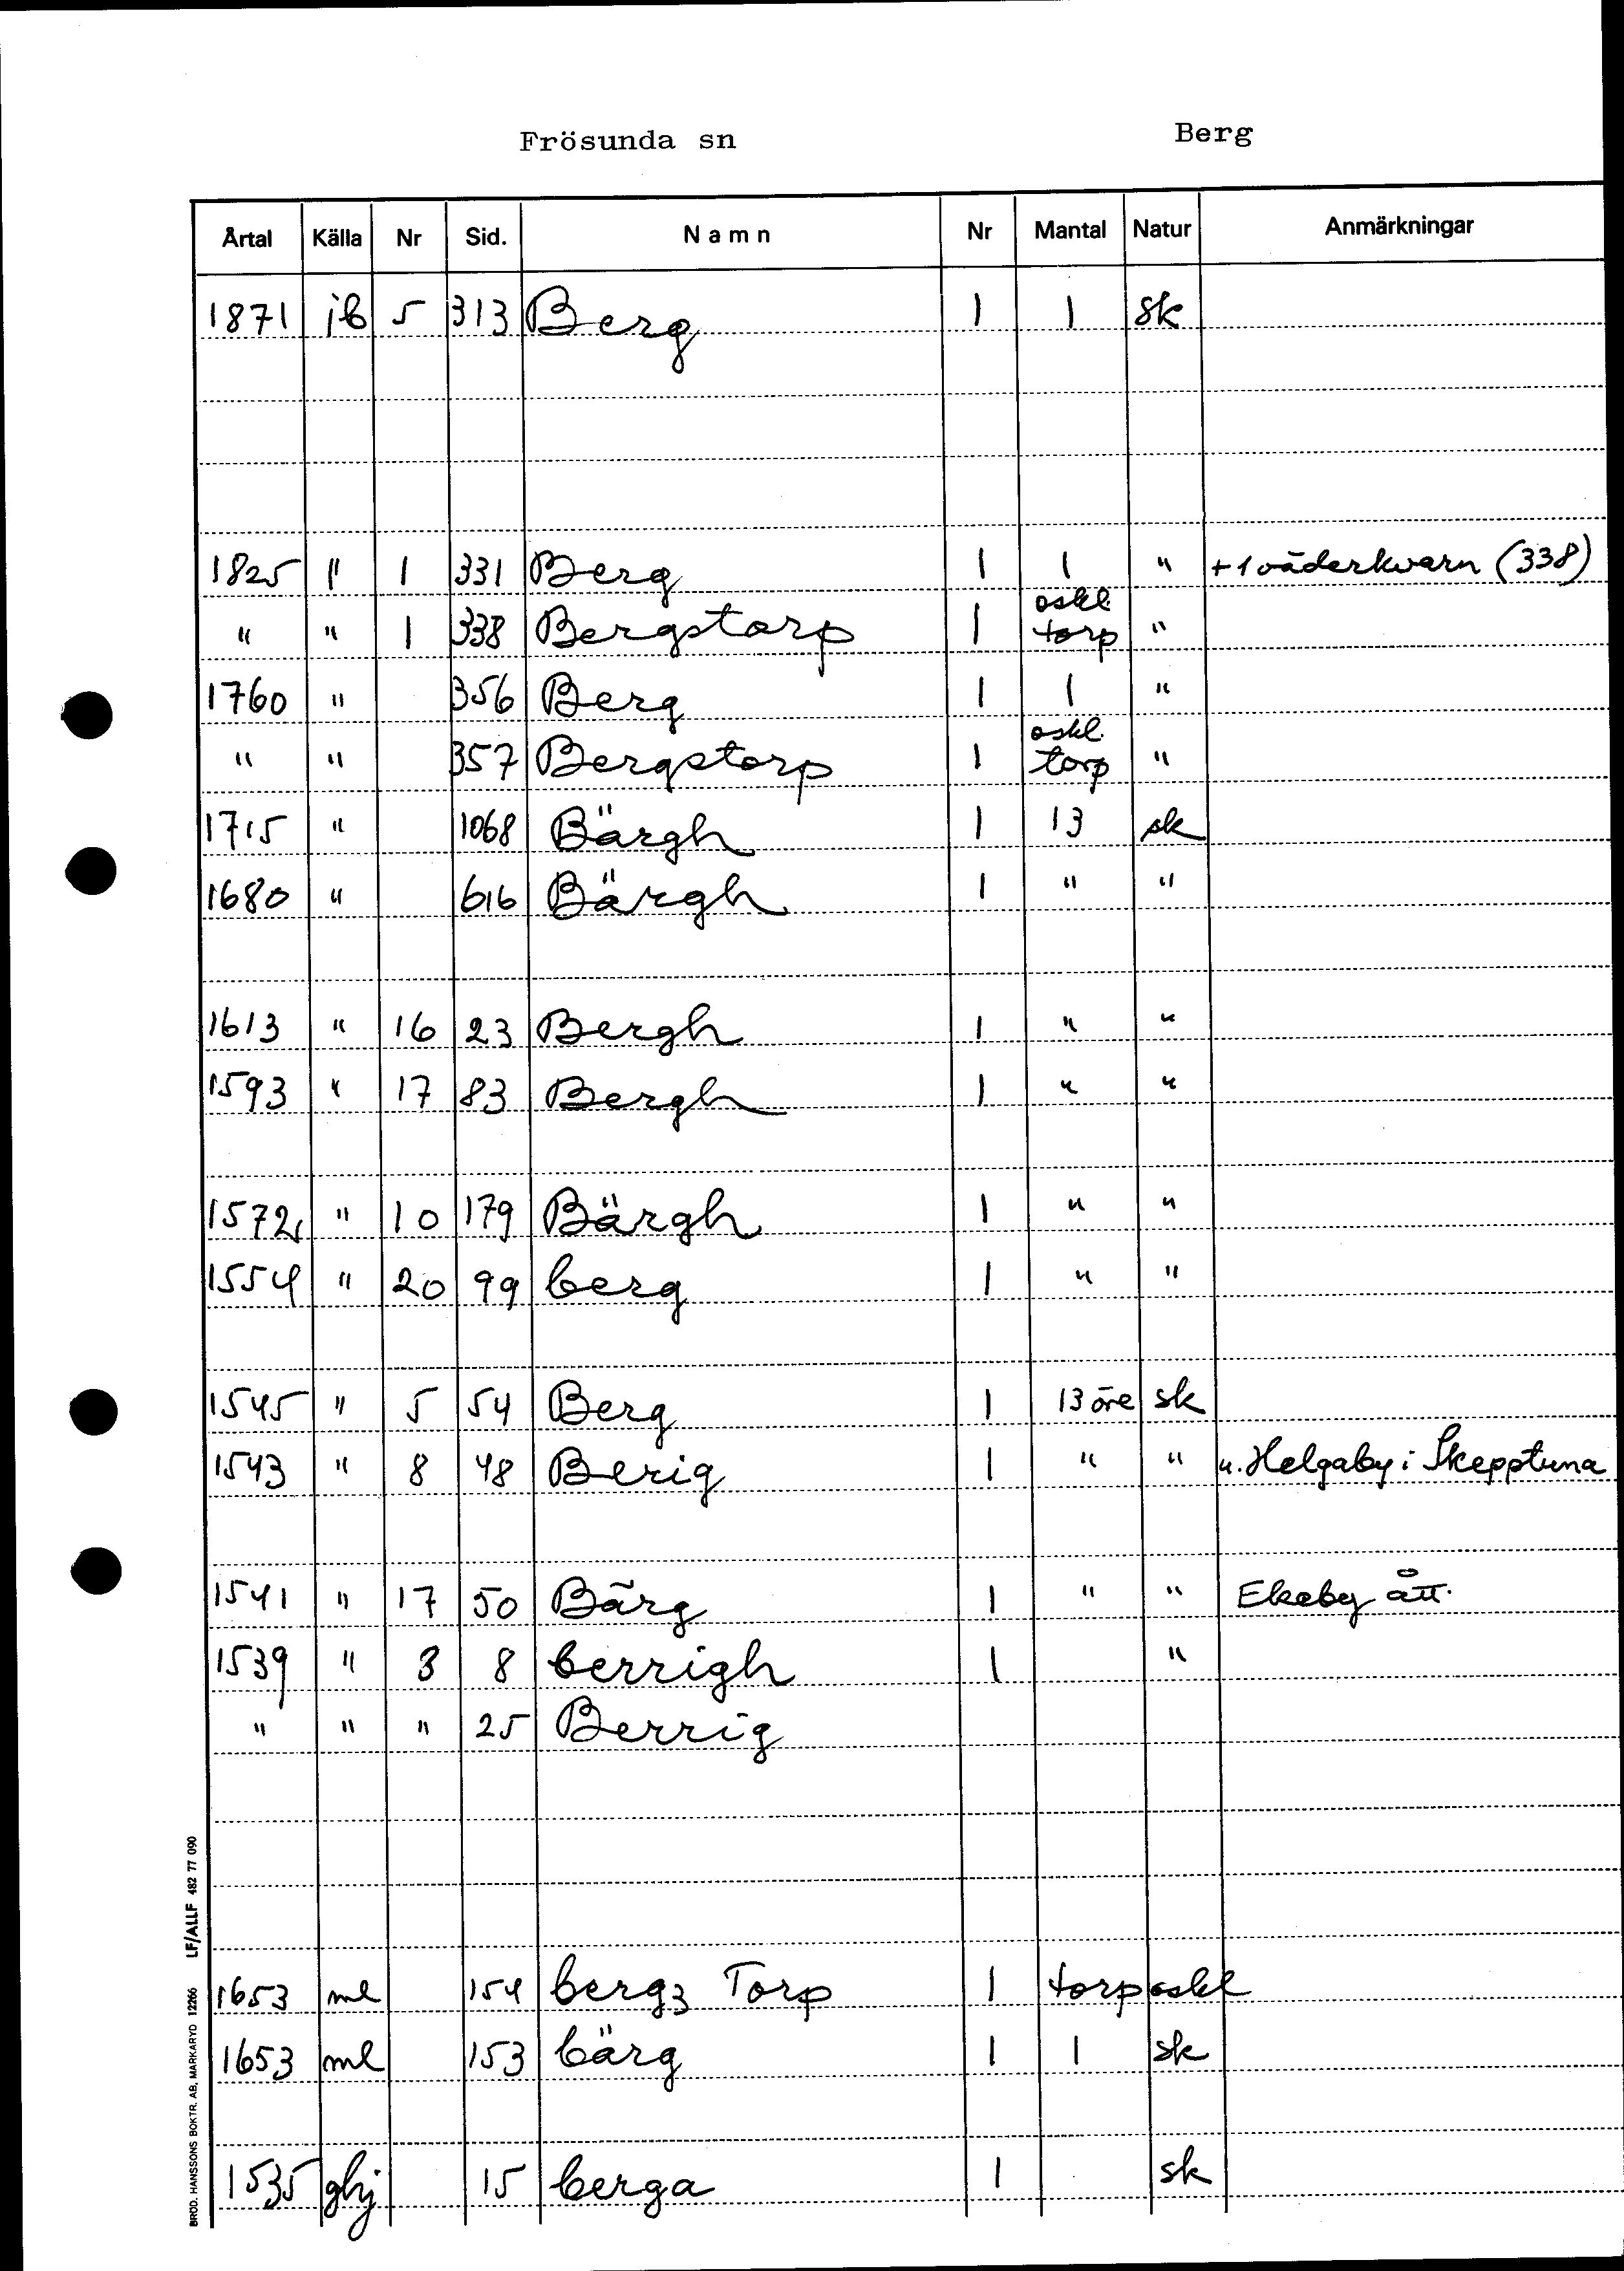 Frösunda sn Berg
Årtal Källa Nr Sid. Namn Nr Mantal Natur Anmärkningar
1871 jb 5 313 Berg 1 1 sk
1825 " 1 331 Berg 1 1 " +1 väderkvarn (338)
" " 1 338 Bergstorp 1 oskl. torp "
1760 " 356 Berg 1 1 "
" " 357 Bergstorp 1 oskl. torp "
1715 " 1068 Bärgh 1 13 sk
1680 " 616 Bärgh 1 " "
1613 " 16 23 Bergh 1 " "
1593 " 17 83 Bergh 1 " "
1572 " 10 179 Bärgh 1 " "
1554 " 20 99 berg 1 " "
1545 " 5 54 Berg 1 13 öre sk
1543 " 8 48 Berig 1 " " u. Helgaby i Skepptuna
1541 " 17 50 Bärg 1 " " Ekeby ått.
1539 " 3 8 berrigh 1 "
" " " 25 Berrig
1653 ml 154 bergz Torp 1 torp oskl
1653 ml 153 bärg 1 1 sk
1535 ghj 15 berga 1 sk
BROD. HANSSONS BOKTR. AB, MARKARYD 12266 LF/ALLF 482 77 090